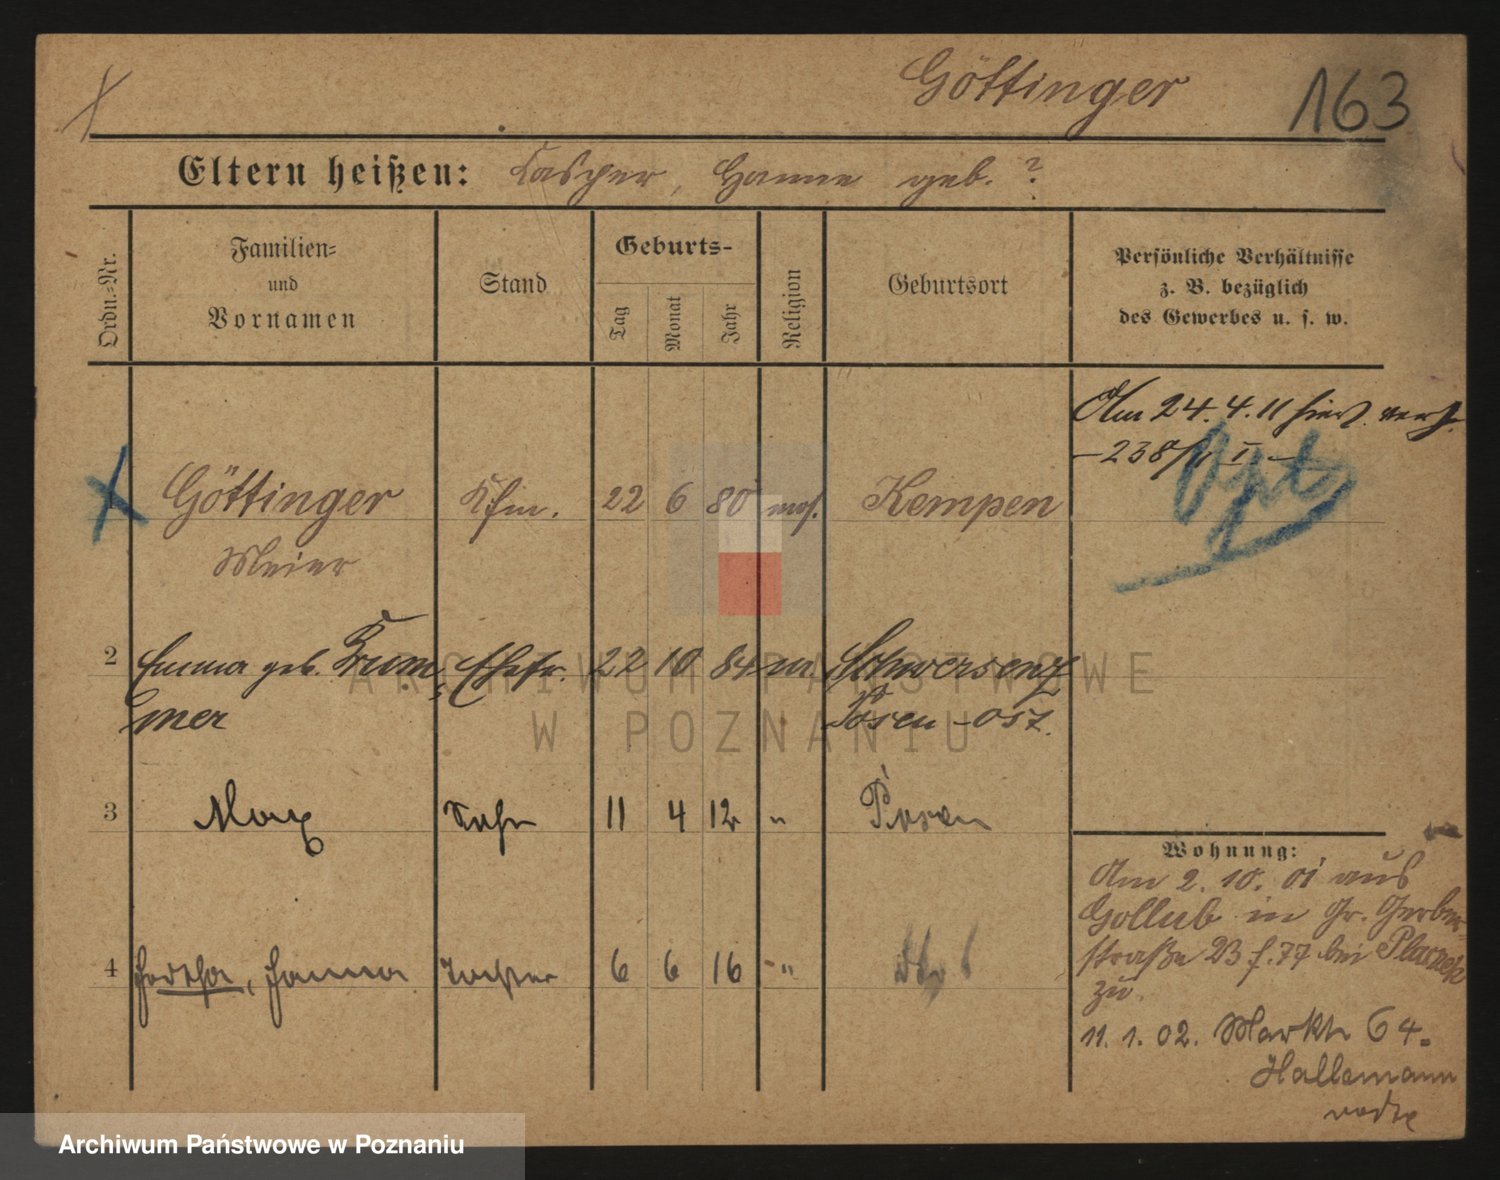 Göttinger 163
Eltern heißen: Casper, Hanne geb. ?
Ordn.-Nr.
Familien-
und
Vornamen
Stand
Geburts-
Tag
Monat
Jahr
Religion
Geburtsort
Persönliche Verhältnisse
z. B. bezüglich
des Gewerbes u. s. w.
Am 24. 4. 11 hier
Göttinger Kfm. 22 6 80 mos. Kempen
Meier
2 Emma geb. Krom- Ehefr. 22 10 84 m. Schwersenz
mer Posen-Ost.
3 Max Sohn 11 4 12 " Posen
4 Hanna Tochter 6 6 16 - "
Wohnung:
Am 2. 10. 01 aus
Gollub in Gr. Gerber-
straße 23 bei
zu.
11. 1. 02. Markt 64.
Hallemann
ARCHIWUM PAŃSTWOWE
W POZNANIU
Archiwum Państwowe w Poznaniu